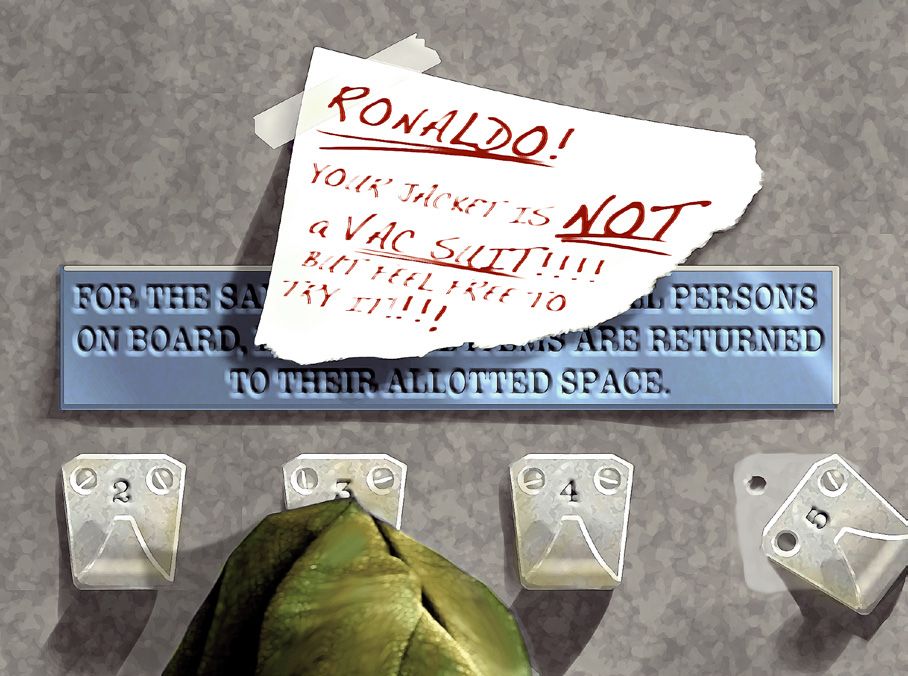 RONALDO!
YOUR JACKET IS NOT
a VAC SUIT!!!!
BUT FEEL FREE TO
TRY IT!!!!
FOR THE PERSONS
ON BOARD, ARE RETURNED
TO THEIR ALLOTTED SPACE.
2 3 4 5